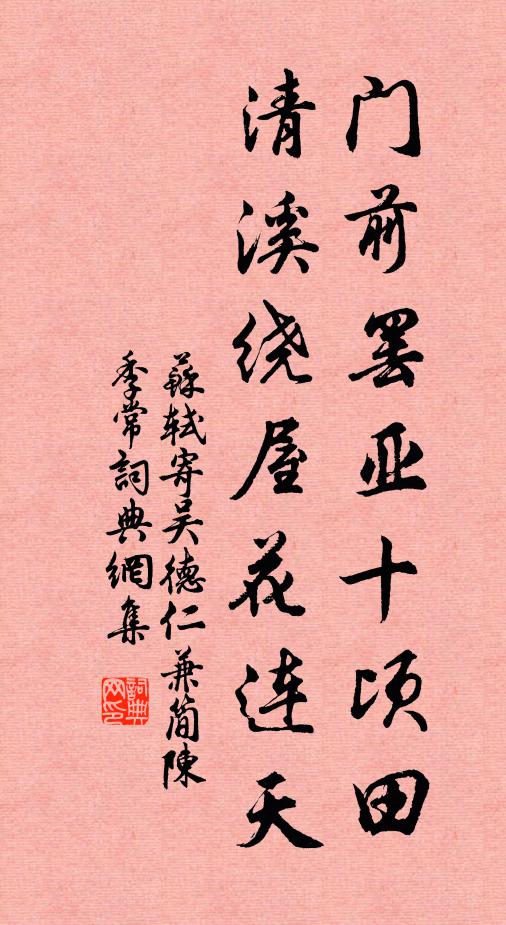 门前罢亚十顷田
清溪绕屋花连天
蘇轼寄吴德仁兼简陳
季常詞典網集
詞典
网印